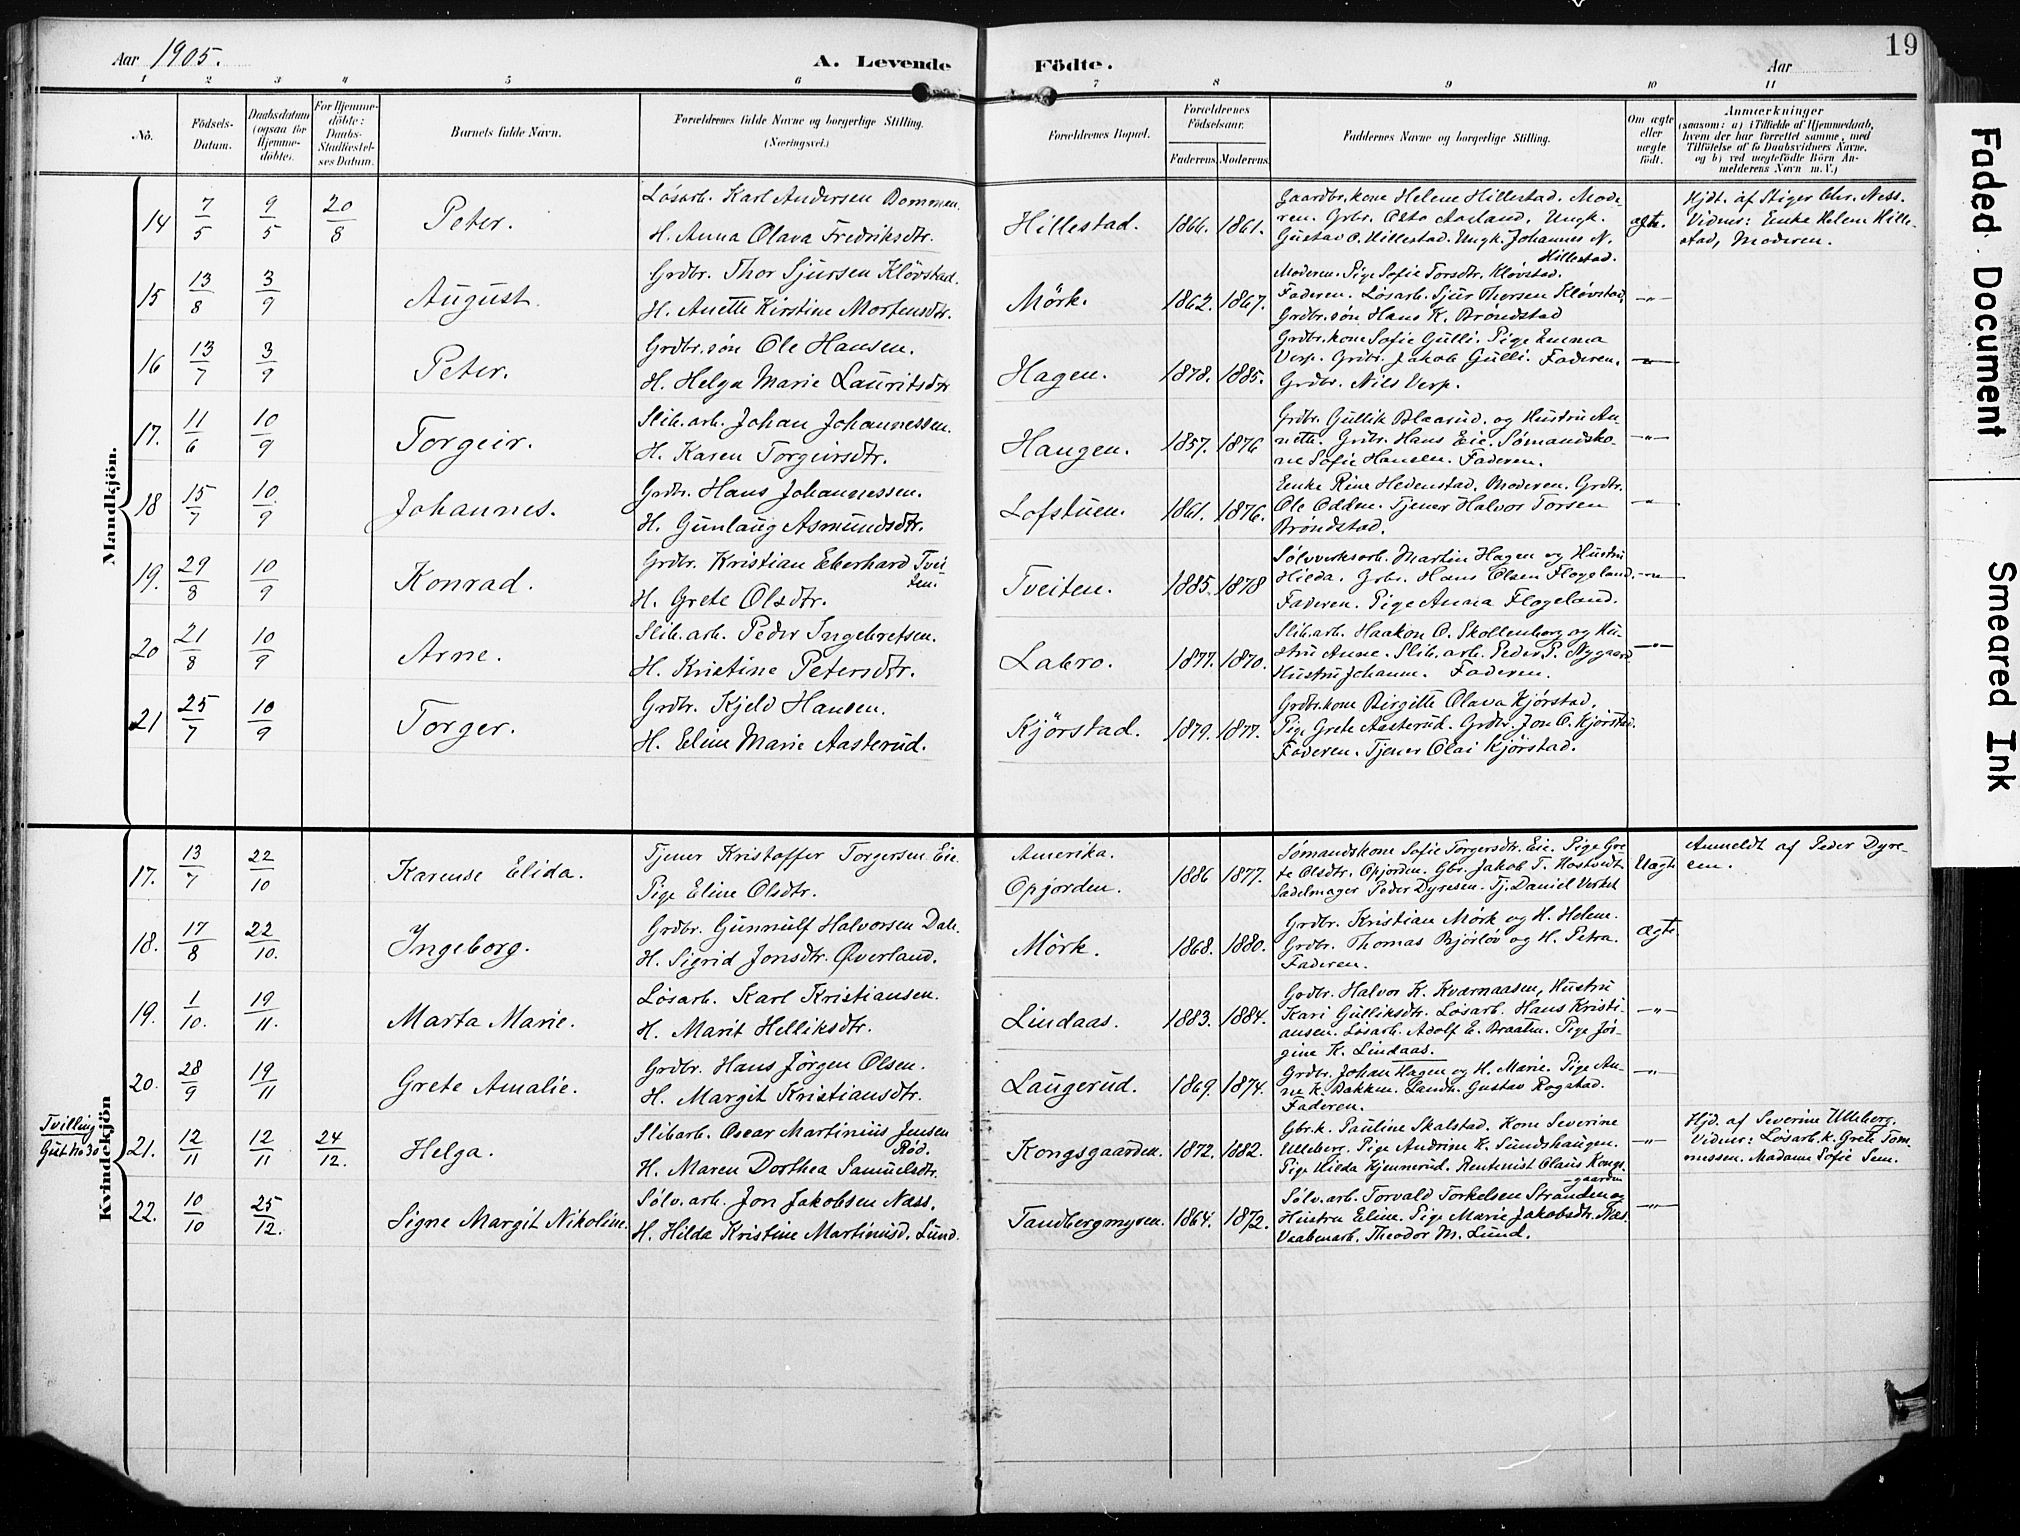 Aar 1905. A. Levende Födte. Aar 19
1 2 3 4 5 6 7 8 9 10 11
No. Födsels-Datum. Daabsdatum (ogsaa for Hjemmedöbte). For Hjemmedöbte: Daabs-Stadfæstelses Datum. Barnets fulde Navn. Forældrenes fulde Navne og borgerlige Stilling. (Næringsvei.) Forældrenes Bopæl. Forældrenes Födselsaar. Faderens. Moderens. Faddernes Navne og borgerlige Stilling. Om ægte eller uægte födt. Anmærkninger
(saasom: a) i Tilfælde af Hjemmedaab, hvem der har forrettet samme, med Tilföielse af to Daabsvidners Navne, og b) ved uægtefödte Börn Anmelderens Navn m. V.)
Mandkjön.
14 7/5 9/5 20/8 Peter. Løsarb. Karl Andersen Dommen.
H. Anna Olava Fredriksdtr. Hillestad. 1866. 1861. Gaardbr.kone Helene Hillestad. Mode-
ren. Grbr. Otto Aasland. Ungk.
Gustav O. Hillestad. Ungk. Johannes N.
Hillestad. ægte. Hjdt. af Stiger Chr. Ness.
Vidner: Enke Helene Hille-
stad, Moderen.
15 13/8 3/9 August. Grdbr. Thor Sjursen Kløvstad.
H. Anette Kirstine Mortensdtr. Mörk. 1862. 1867. Moderen. Pige Sofie Torsdtr. Kløvstad.
Faderen. Løsarb. Sjur Thorsen Kløvstad,
Grdbr.søn Hans K. Brøndstad —"—
16 13/7 3/9 Peter. Grdbr.søn Ole Hansen.
H. Helga Marie Lauritsdtr Hagen. 1878. 1885. Grdbr.kone Sofie Gulli. Pige Emma
Verp. Grdbr. Jakob Gulli. Faderen.
Grdbr. Nils Verp. —"—
17. 11/6 10/9 Torgeir. Slib.arb. Johan Johannessen.
H. Karen Torgeirsdtr. Haugen. 1857. 1876 Grdbr. Gullik Blaarud, og Hustru An-
nette. Grdbr. Hans Eie. Sømandsko-
ne Sofie Hansen. Faderen. —"—
18 15/7 10/9 Johannes. Grdbr. Hans Johannessen.
H. Gunlaug Asmundsdtr. Lofstuen. 1861. 1876. Enke Rine Hedenstad. Moderen. Grdbr.
Ole Odden. Tjener Halvor Torsen
Brøndstad. —"—
19. 29/8 10/9 Konrad. Grdbr. Kristian Eberhard Tvei-
ten.
H. Grete Olsdtr. Tveiten. 1885. 1878 Sølvverksarb. Martin Hagen og Hustru
Hilda. Grbr. Hans Olsen Flogeland.
Faderen. Pige Anna Flogeland. —"—
20 21/8 10/9 Arne. Slib.arb. Peder Ingebretsen.
H. Kristine Petersdtr. Labro. 1877. 1870. Slib.arb. Haakon O. Skollenborg og Hu-
stru Anne. Slib.arb. Peder P. Nygaard
Hustru Johanne. Faderen. —"—
21 25/7 10/9 Torger. Grdbr. Kjeld Hansen.
H. Eline Marie Aasterud. Kjörstad. 1879. 1877. Grdbr.kone Birgitte Olava Kjørstad.
Pige Grete Aasterud. Grdbr. Jon O. Kjørstad.
Faderen. Tjener Olai Kjørstad.
Kvindekjön
17. 13/7 22/10 Karense Elida. Tjener Kristoffer Torgersen Eie
Pige Eline Olsdtr. Amerika.
Opjorden. 1886 1877. Sømandskone Sofie Torgersdtr. Eie. Pige Gre-
te Olsdtr. Opjorden. Gbr. Jakob T. Hostvedt
Sadelmager Peder Dyresen. Tj. Daniel Verket Uægte Anmeldt af Peder Dyre-
sen.
18. 17/8 22/10. Ingeborg. Grdbr. Gunnulf Halvorsen Dale.
H. Sigrid Jonsdtr. Øverland. Mörk. 1868. 1880. Grdbr. Kristian Mørk og H. Helene.
Grdbr. Thomas Bjørløv og H. Petra.
Faderen. Ægte
19. 1/10. 19/11. Marta Marie. Løsarb. Karl Kristiansen.
H. Marit Helliksdtr. Lindaas. 1883. 1884. Grdbr. Halvor K. Kværnaasen, Hustru
Kari Gulliksdtr. Løsarb. Hans Kristi-
ansen. Løsarb. Adolf E. Braaten. Pige Jör-
gine K. Lindaas. —"—
20. 28/9 19/11 Grete Amalie. Grdbr. Hans Jörgen Olsen.
H. Margit Kristiansdtr. Laugerud. 1869. 1874. Grdbr. Johan Hagen og H. Marie. Pige An-
ne K. Bakken. Landh. Gustav Rogstad.
Faderen. —"—
Tvilling
Gut No 30 21. 12/11 12/11 24/12. Helga. Slibarb. Oscar Martinius Jensen
Rød.
H. Maren Dorthea Samuelsdtr. Kongsgaarden. 1872. 1882. Gbr.k. Pauline Skalstad. Kone Severine
Ulleberg. Pige Andrine K. Sundshaugen.
Pige Hilda Kjennerud. Rentenist Claus Kongs-
gaarden —"— Hjd. af Severine Ulleberg.
Vidner: Løsarb.k. Grete Tom-
messen. Madame Sofie Sem.
22. 10/10 25/12. Signe Margit Nikoline. Sølv.arb. Jon Jakobsen Næss.
H. Hilda Kristine Martinusd. Lund. Tandbergmyren. 1864. 1872. Sølv.arb. Torvald Torkelsen Stranden og
Hustru Eline. Pige Marie Jakobsdtr. Næs.
Vaabenarb. Theodor M. Lund. —"—
Faded Document
Smeared Ink